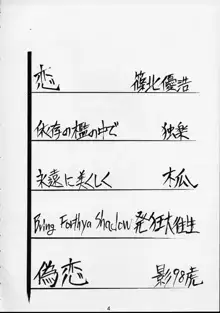 恋 篠北優浩
依存の檻の中で 独楽
永遠に美しく 木瓜
Dying Forthya Shadow 発狂大往生
偽恋 影98虎
4